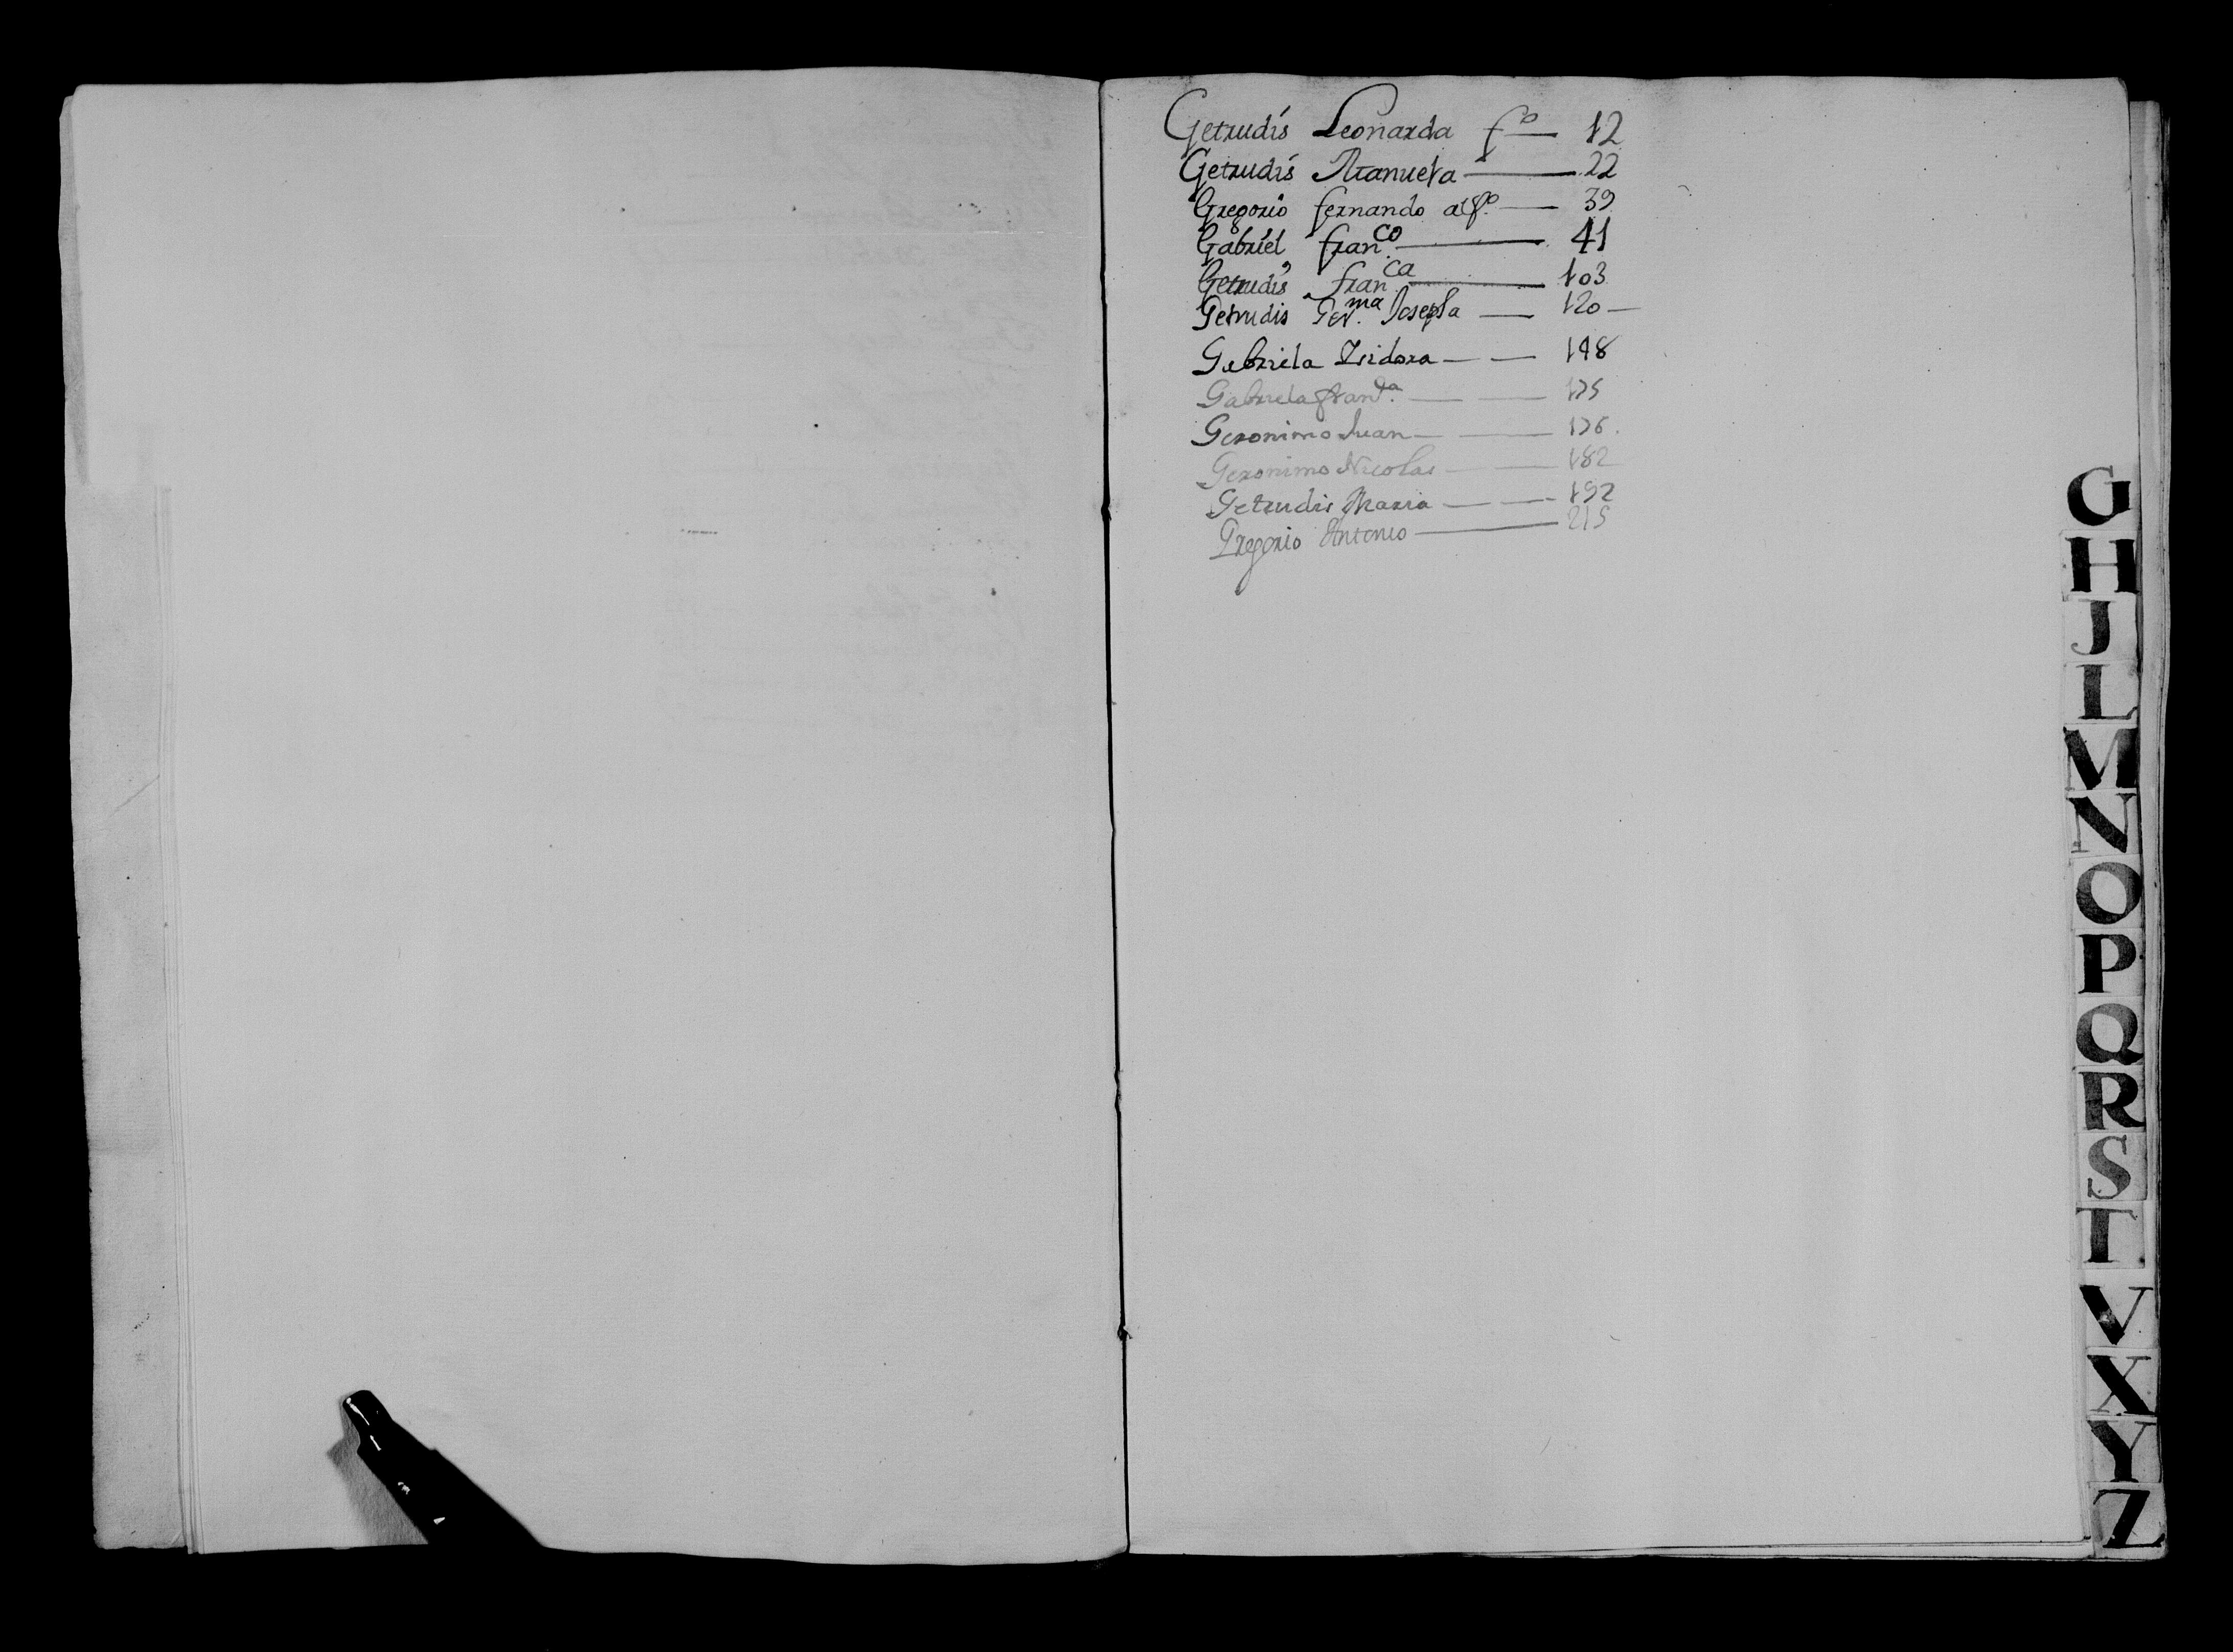 Getrudis Leonarda fº — 12
Getrudis Manuela — 22
Gregorio fernando alfº. — 39
Gabriel franco. — 41
Getrudis franca. — 103
Getrudis Germa. Josepha — 120 —
Gabriela Isidora — — 148
Gabriela — — 175
Geronimo Juan — — 176.
Geronimo Nicolas — — 182
Getrudis Maria — — 192
Gregorio Antonio — 215
G
H
J
L
M
N
O
P
Q
R
S
T
V
X
Y
Z